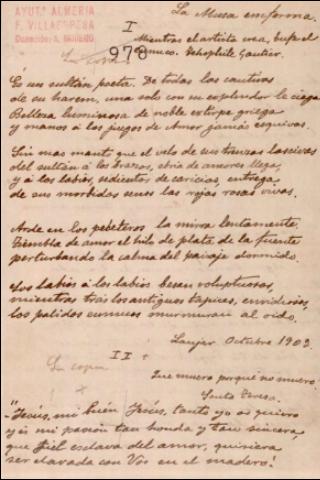 La Musa enferma.
AYUTº ALMERIA
F. VILLAESPESA
I
978
Mientras el artista crea, bufe el
eunuco. Théophile Gautier.
Es un sultán poeta. De todas las cautivas
de su harem, una solo con su esplendor le ciega
Belleza luminosa de noble estirpe griega
y manos a los juegos de Amor jamás esquivas.
Sin mas manto que el velo de sus trenzas lascivas
del sultán a los brazos, ebria de amores llega,
y a los labios, sedientos de caricias, entrega
de sus morbidos senos las rojas rosas vivas.
Arde en los pebeteros la mirra lentamente.
Tiembla de amor el hilo de plata de la fuente
perturbando la calma del paisaje dormido.
Los labios a los labios besan voluptuosos,
mientras trás los antiguos tapices, envidiosos,
los palidos eunucos murmuran al oido.
Laujar Octubre 1902.
II
Sin copia
Que muero porqué no muero.
Santa Teresa.
"Jesús, mi buén Jesús, tanto yo os quiero
y es mi pasión tan honda y tan sincera,
que fiel esclava del amor, quisiera
ser clavada con Vos en el madero!